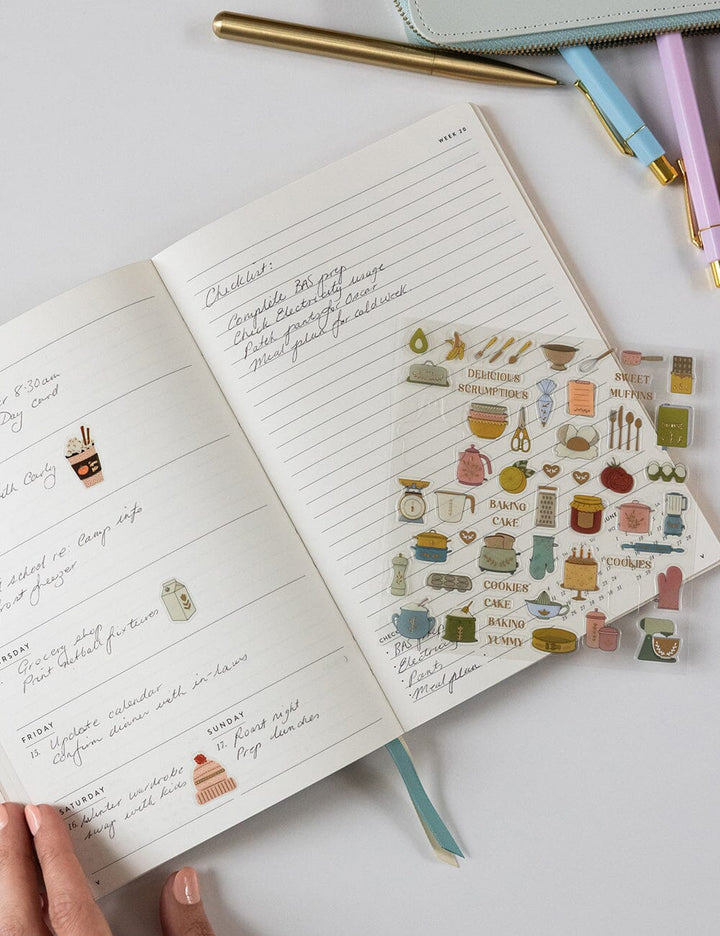 8:30am
Day card
with Carly
school re: Camp info
freezer
Grocery shop
Print netball fixtures
FRIDAY
15. Update calendar
Confirm dinner with in-laws
SATURDAY
16. Winter wardrobe
swap with kids
SUNDAY
17. Roast night
Prep lunches
WEEK 20
Checklist:
Complete BAS prep
Check Electricity usage
Patch pants for Oscar
Meal plan for cold week
DELICIOUS
SCRUMPTIOUS
SWEET
MUFFINS
BAKING
CAKE
COOKIES
COOKIES
CAKE
BAKING
YUMMY
JUNE
BAS prep
Electricity
Pants
Meal plan